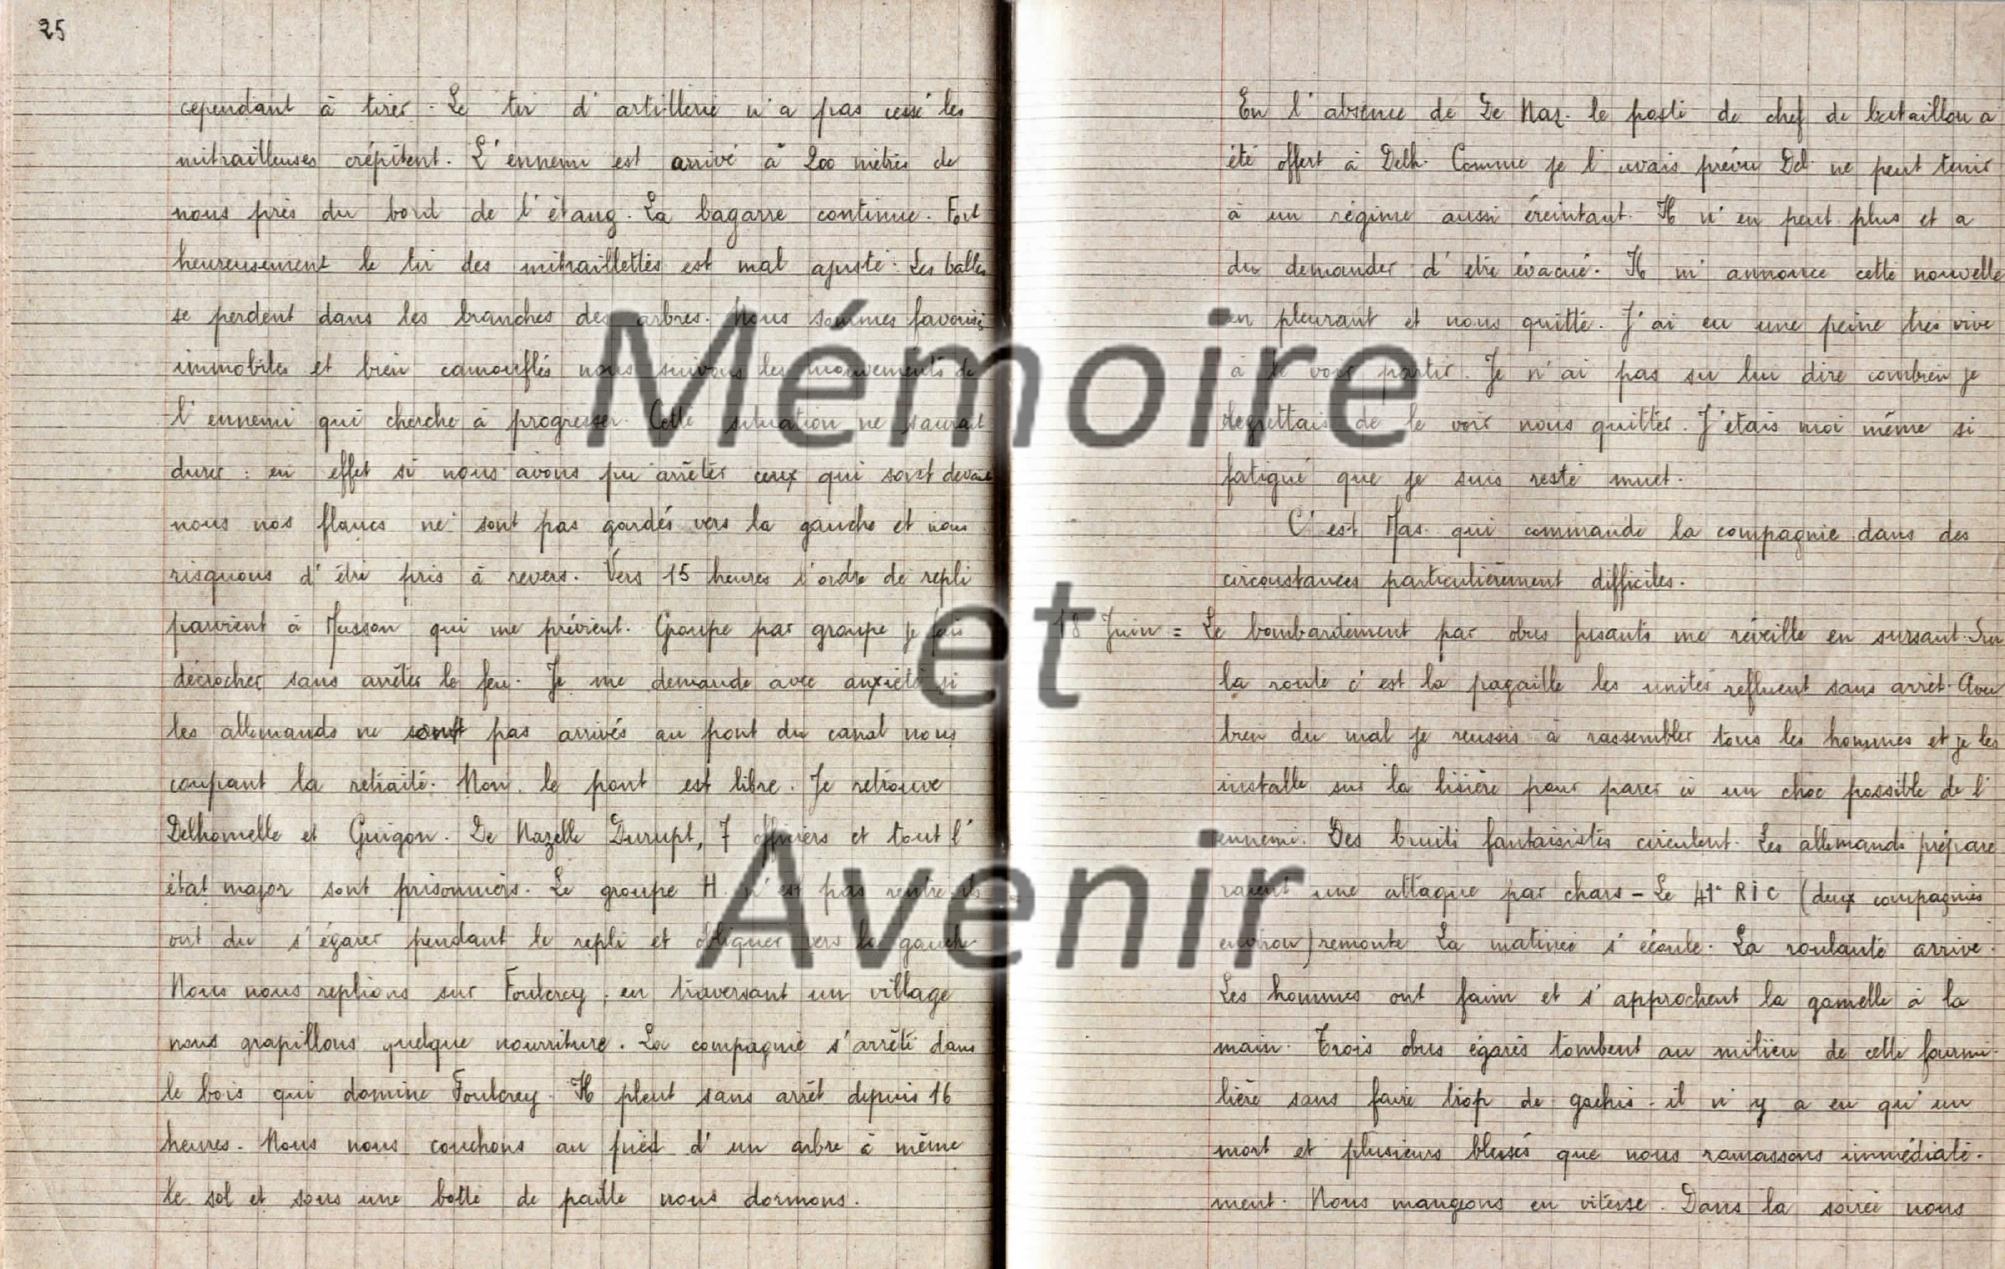 25
cependant à tirer. Le tir d'artillerie n'a pas cessé les
mitrailleuses crépitent. L'ennemi est arrivé à 200 mètres de
nous près du bord de l'étang. La bagarre continue. Fort
heureusement le tir des mitraillettes est mal ajusté. Les balles
se perdent dans les branches des arbres. Nous sommes favorisés
immobiles et bien camouflés nous suivons les mouvements de
l'ennemi qui cherche à progresser. Cette situation ne saurait
durer : en effet si nous avons pu arrêter ceux qui sont devant
nous nos flancs ne sont pas gardés vers la gauche et nous
risquons d'être pris à revers. Vers 15 heures l'ordre de repli
parvient à Masson qui me prévient. Groupe par groupe je fais
décrocher sans arrêter le feu. Je me demande avec anxiété si
les allemands ne sont pas arrivés au pont du canal nous
coupant la retraite. Non. le pont est libre. Je retrouve
Delhomelle et Guigon. De Nazelle Durupt, 7 officiers et tout l'
état major sont prisonniers. Le groupe H. n'est pas rentré ils
ont du s'égarer pendant le repli et obliquer vers la gauche
Nous nous replions sur Foulcrey, en traversant un village
nous grapillons quelque nourriture. La compagnie s'arrête dans
le bois qui domine Foulcrey. Il pleut sans arrêt depuis 16
heures. Nous nous couchons au pied d'un arbre à même
le sol et sous une botte de paille nous dormons.
En l'absence de De Naz. le poste de chef de bataillon a
été offert à Delh. Comme je l'avais prévu Del ne peut tenir
à un régime aussi éreintant. Il n'en peut plus et a
du demander d'etre évacué. Il m'annonce cette nouvelle
en pleurant et nous quitte. J'ai eu une peine très vive
à le voir partir. Je n'ai pas su lui dire combien je
regrettais de le voir nous quitter. J'étais moi même si
fatigué que je suis resté muet.
C'est Mas. qui commande la compagnie dans des
circonstances particulièrement difficiles.
18 Juin = Le bombardement par obus fusants me réveille en sursaut. Sur
la route c'est la pagaille les unités refluent sans arrêt. Avec
bien du mal je reussis à rassembler tous les hommes et je les
installe sur la lisière pour parer à un choc possible de l'
ennemi. Des bruits fantaisistes circulent. Les allemands prépare
raient une attaque par chars - Le 41e RIC (deux compagnies
environ) remonte La matinée s'écoule. La roulante arrive.
Les hommes ont faim et s'approchent la gamelle à la
main. Trois obus égarés tombent au milieu de cette fourmi-
lière sans faire trop de gachis. il n'y a eu qu'un
mort et plusieurs blessés que nous ramassons immédiate-
ment. Nous mangeons en vitesse. Dans la soirée nous
Mémoire
et
Avenir